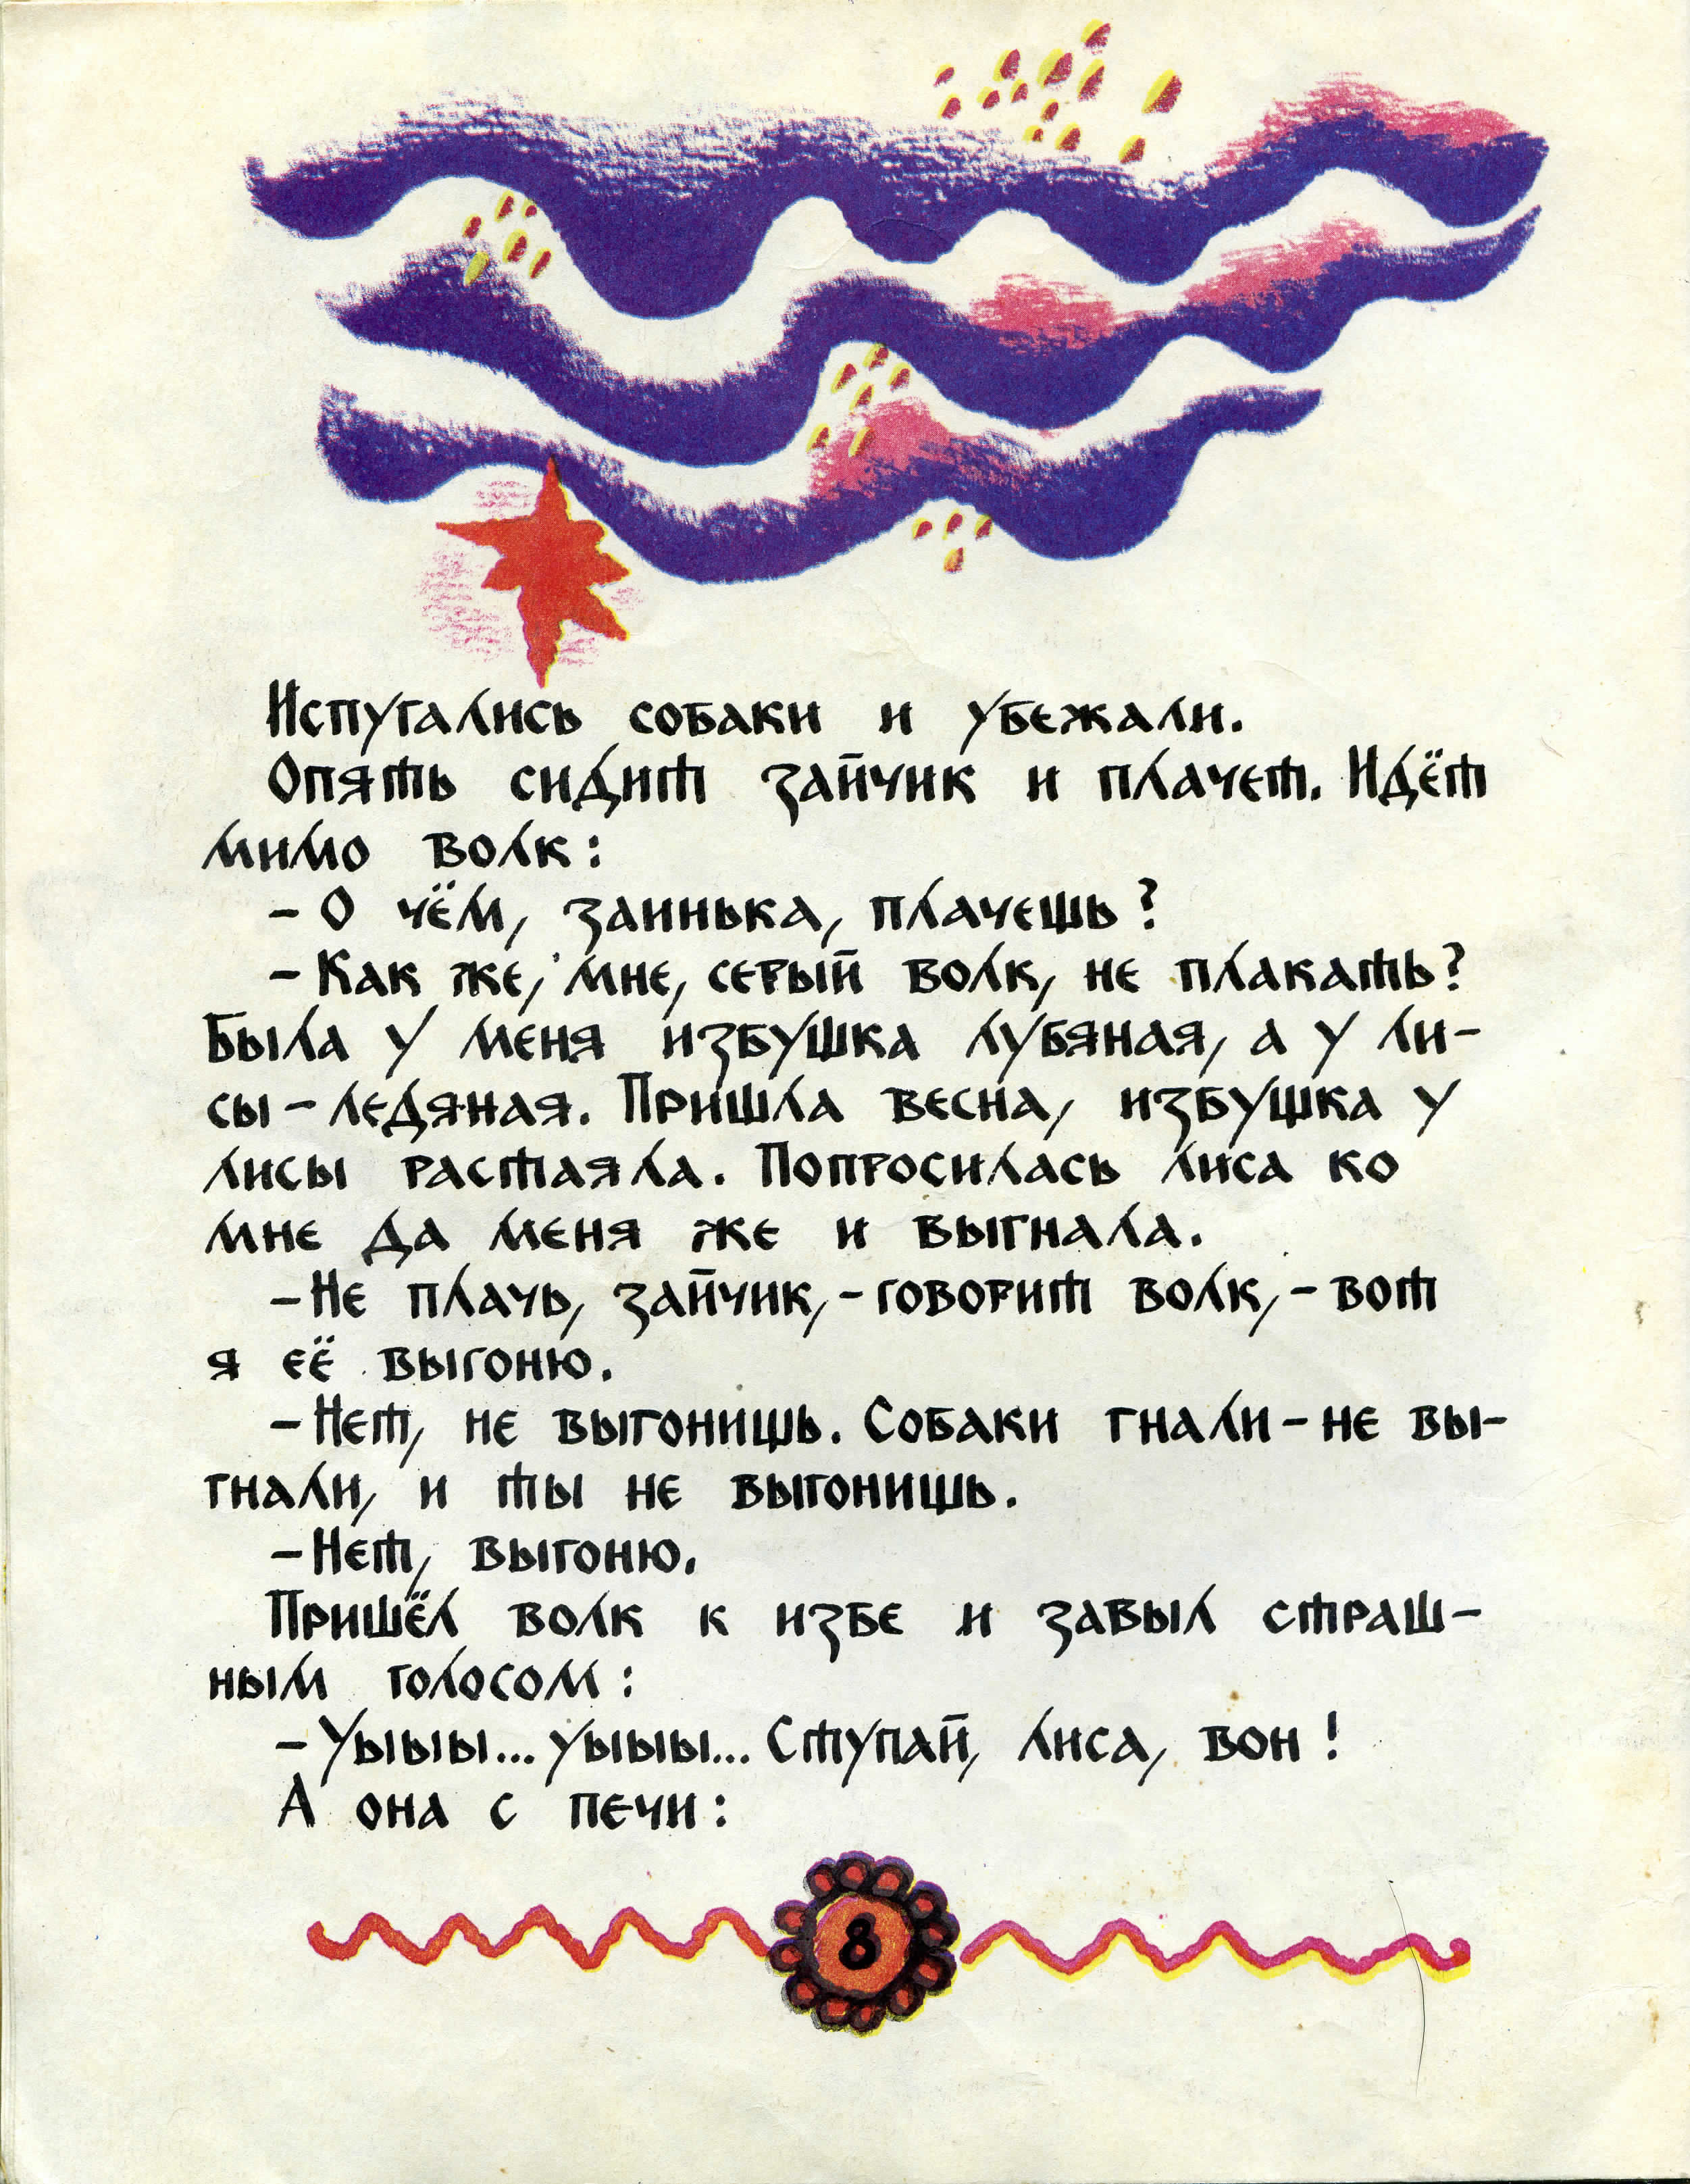 Испугались собаки и убежали.
Опять сидит зайчик и плачет. Идёт
мимо волк:
– О чём, заинька, плачешь?
– Как же, мне, серый волк, не плакать?
Была у меня избушка лубяная, а у ли-
сы – ледяная. Пришла весна, избушка у
лисы растаяла. Попросилась лиса ко
мне да меня же и выгнала.
– Не плачь, зайчик, – говорит волк, – вот
я её выгоню.
– Нет, не выгонишь. Собаки гнали – не вы-
гнали, и ты не выгонишь.
– Нет, выгоню.
Пришёл волк к избе и завыл страш-
ным голосом:
– Уыыы... уыыы... Ступай, лиса, вон!
А она с печи:
8